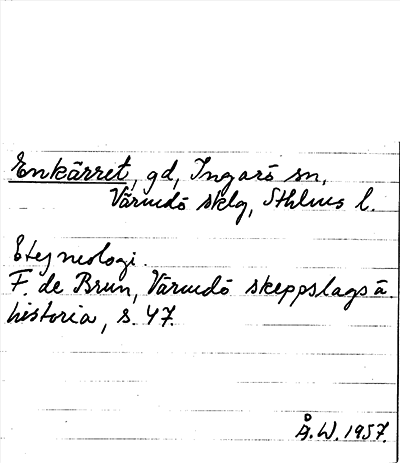 Enkärret, gd, Ingarö sn,
Värmdö sklg, Sthlms l.
Etymologi.
F. de Brun, Värmdö skeppslags ä.
historia, s. 47.
Å.W. 1957.